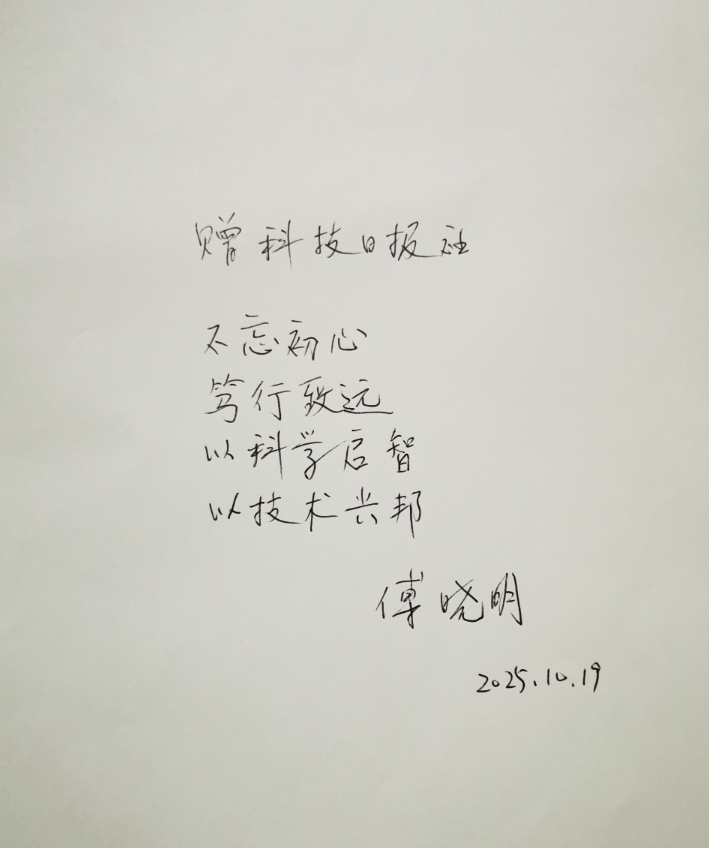 赠科技日报社
不忘初心
笃行致远
以科学启智
以技术兴邦
傅晓明
2025.10.19